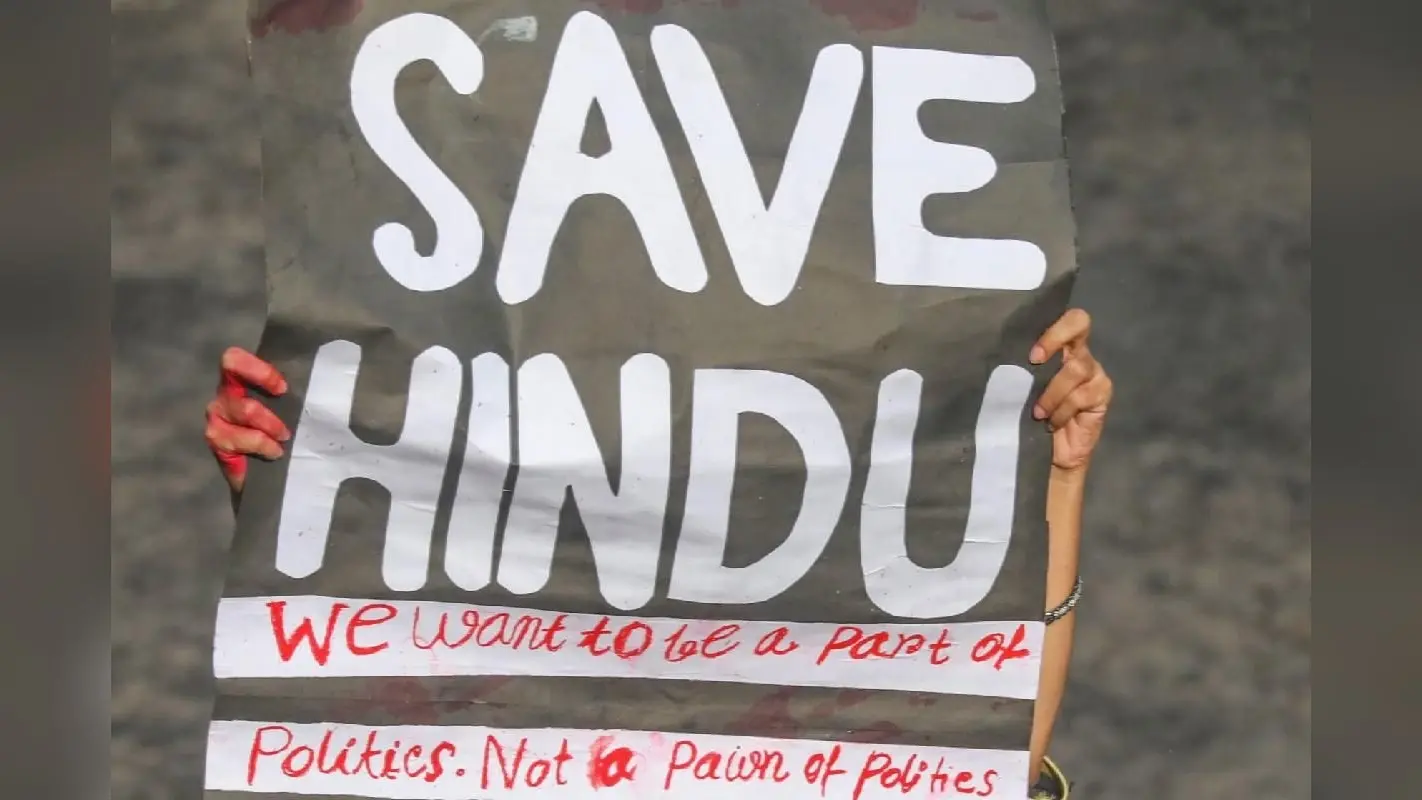 SAVE
HINDU
We want to be a part of
Politics. Not a pawn of polities